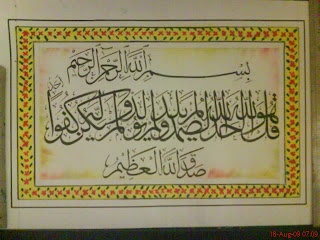 بسم الله الرحمن الرحيم
قل هو الله احد الله الصمد لم يلد ولم يولد ولم يكن له كفوا احد
صدق الله العظيم
15-Aug-09 07:09